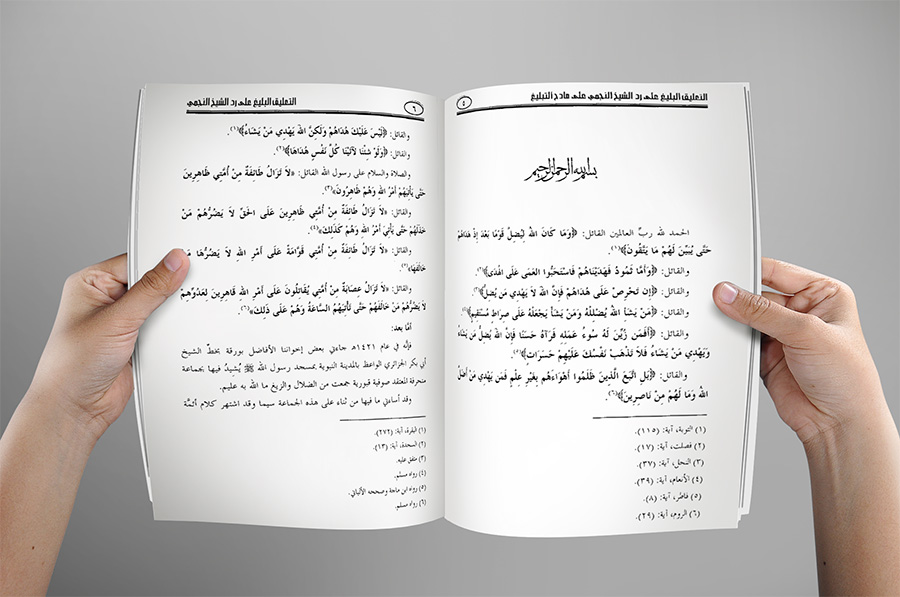 التعليق البليغ على رد الشيخ النجمي على مادح التبليغ
٤
بسم الله الرحمن الرحيم
الحمد لله ربّ العالمين القائل: ﴿وَمَا كَانَ اللهُ لِيُضِلَّ قَوْمًا بَعْدَ إِذْ هَدَاهُمْ
حَتَّى يُبَيِّنَ لَهُمْ مَا يَتَّقُونَ﴾(١).
والقائل: ﴿وَأَمَّا ثَمُودُ فَهَدَيْنَاهُمْ فَاسْتَحَبُّوا العَمَى عَلَى الهُدَى﴾(٢).
والقائل: ﴿إِن تَحْرِصْ عَلَى هُدَاهُمْ فَإِنَّ اللهَ لاَ يَهْدِي مَن يُضِلُّ﴾(٣).
والقائل: ﴿مَنْ يَشَأِ اللهُ يُضْلِلْهُ وَمَنْ يَشَأْ يَجْعَلْهُ عَلَى صِرَاطٍ مُسْتَقِيمٍ﴾(٤).
والقائل: ﴿أَفَمَن زُيِّنَ لَهُ سُوءُ عَمَلِهِ فَرَآهُ حَسَنًا فَإِنَّ اللهَ يُضِلُّ مَن يَشَاءُ
وَيَهْدِي مَنْ يَشَاءُ فَلاَ تَذْهَبْ نَفْسُكَ عَلَيْهِمْ حَسَرَاتٍ﴾(٥).
والقائل: ﴿بَلِ اتَّبَعَ الَّذِينَ ظَلَمُوا أَهْوَاءَهُم بِغَيْرِ عِلْمٍ فَمَن يَهْدِي مَنْ أَضَلَّ
اللهُ وَمَا لَهُمْ مِنْ نَاصِرِينَ﴾(٦).
(١) التوبة، آية: (١١٥).
(٢) فصلت، آية: (١٧).
(٣) النحل، آية: (٣٧).
(٤) الأنعام، آية: (٣٩).
(٥) فاطر، آية: (٨).
(٦) الروم، آية: (٢٩).
التعليق البليغ على رد الشيخ النجمي
٦
والقائل: ﴿لَيْسَ عَلَيْكَ هُدَاهُمْ وَلَكِنَّ اللهَ يَهْدِي مَنْ يَشَاءُ﴾(١).
والقائل: ﴿وَلَوْ شِئْنَا لآتَيْنَا كُلَّ نَفْسٍ هُدَاهَا﴾(٢).
والصلاة والسلام على رسول الله القائل: «لاَ تَزَالُ طَائِفَةٌ مِنْ أُمَّتِي ظَاهِرِينَ
حَتَّى يَأْتِيَهُمْ أَمْرُ اللهِ وَهُمْ ظَاهِرُونَ»(٣).
والقائل: «لاَ تَزَالُ طَائِفَةٌ مِنْ أُمَّتِي ظَاهِرِينَ عَلَى الحَقِّ لاَ يَضُرُّهُمْ مَنْ
خَذَلَهُمْ حَتَّى يَأْتِيَ أَمْرُ اللهِ وَهُمْ كَذَلِكَ»(٤).
والقائل: «لاَ تَزَالُ طَائِفَةٌ مِنْ أُمَّتِي قَوَّامَةً عَلَى أَمْرِ اللهِ لاَ يَضُرُّهَا مَنْ
خَالَفَهَا»(٥).
والقائل: «لاَ تَزَالُ عِصَابَةٌ مِنْ أُمَّتِي يُقَاتِلُونَ عَلَى أَمْرِ اللهِ قَاهِرِينَ لِعَدُوِّهِمْ
لاَ يَضُرُّهُمْ مَنْ خَالَفَهُمْ حَتَّى تَأْتِيَهُمُ السَّاعَةُ وَهُمْ عَلَى ذَلِكَ»(٦).
أمَّا بعد:
فإنَّه في عام ١٤٢١هـ جاءني بعض إخواننا الأفاضل بورقة بخطِّ الشيخ
أبي بكر الجزائري الواعظ بالمدينة النبوية بمسجد رسول الله ﷺ يُشيدُ فيها بجماعة
منحرفة المعتقد صوفية قبورية جمعت من الضلال والزيغ ما الله به عليم.
وقد أساءني ما فيها من ثناء على هذه الجماعة سيما وقد اشتهر كلام أئمَّة
(١) البقرة، آية: (٢٧٢).
(٢) السجدة، آية: (١٣).
(٣) متفق عليه.
(٤) رواه مسلم.
(٥) رواه ابن ماجة وصححه الألباني.
(٦) رواه مسلم.